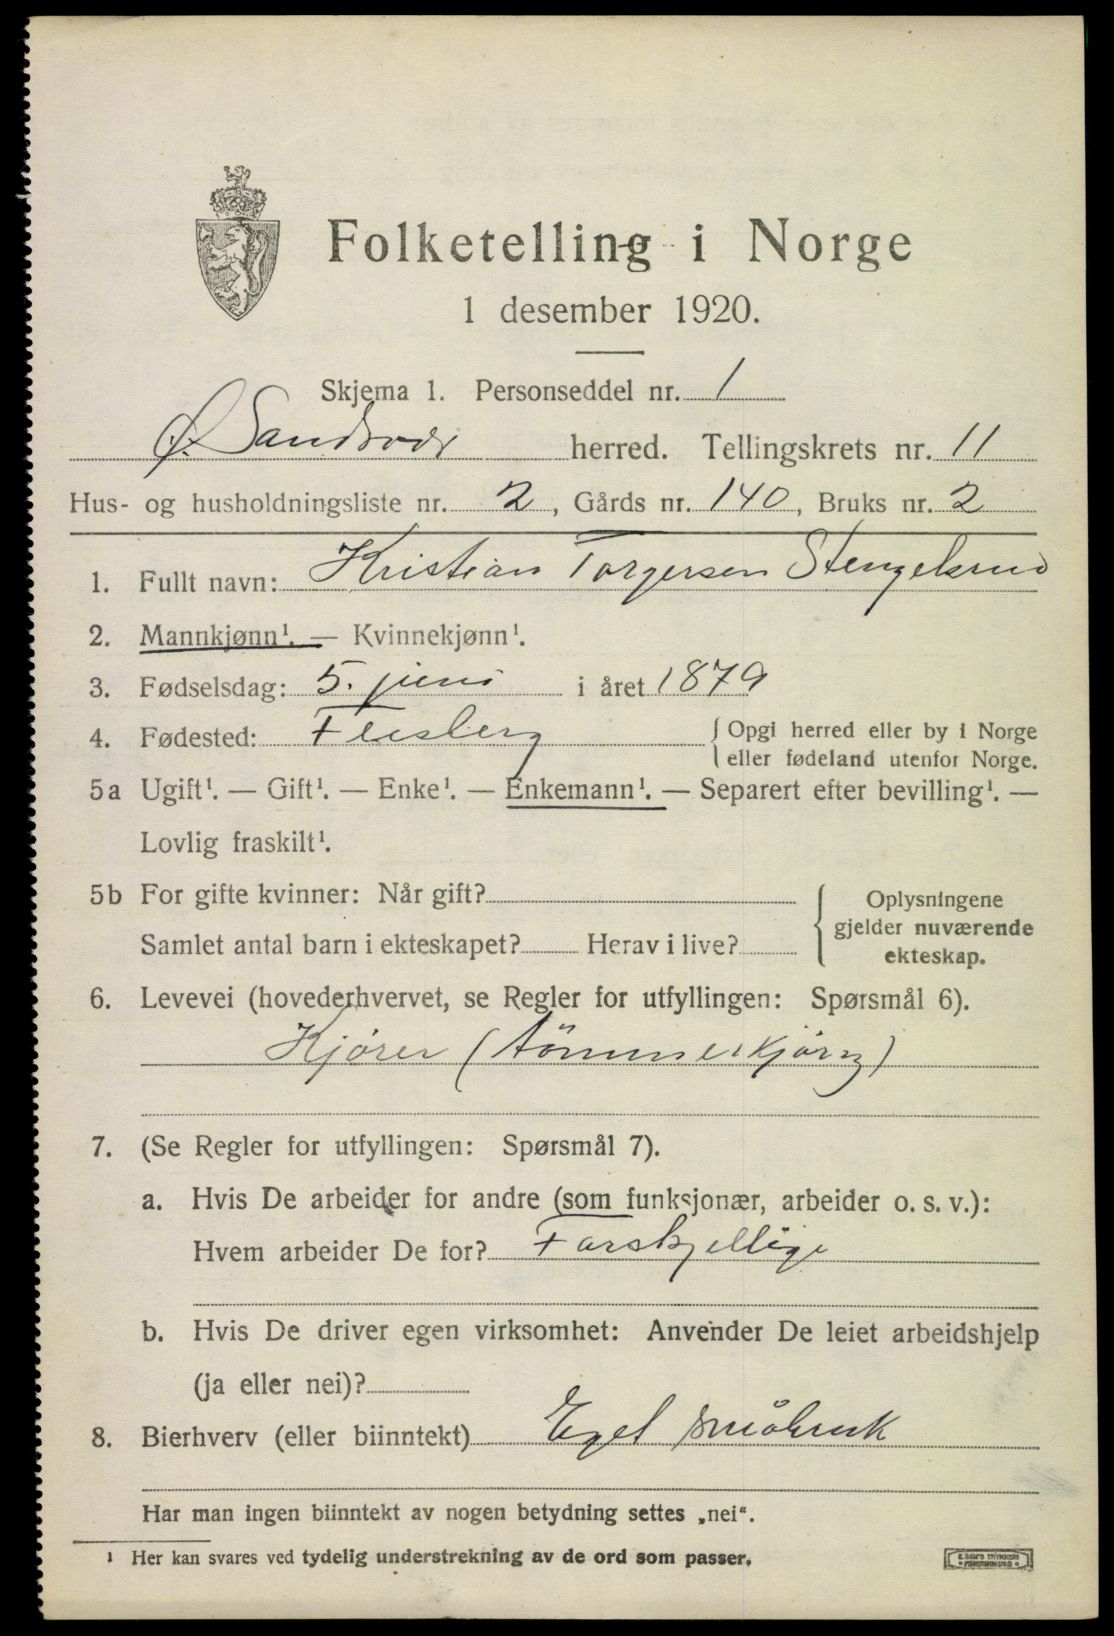 Folketelling i Norge
1 desember 1920.
Skjema 1. Personseddel nr. 1
Ø. Sandsvær herred. Tellingskrets nr. 11
Hus- og husholdningsliste nr. 2, Gårds nr. 140, Bruks nr. 2
1. Fullt navn: Kristian Torgersen Stengelsrud
2. Mannkjønn¹. — Kvinnekjønn¹.
3. Fødselsdag: 5. juni i året 1879
4. Fødested: Flesberg { Opgi herred eller by i Norge
eller fødeland utenfor Norge.
5a Ugift¹. — Gift¹. — Enke¹. — Enkemann¹. — Separert efter bevilling¹. —
Lovlig fraskilt¹.
5b For gifte kvinner: Når gift?
Samlet antal barn i ekteskapet? Herav i live?
{ Oplysningene
gjelder nuværende
ekteskap.
6. Levevei (hovederhvervet, se Regler for utfyllingen: Spørsmål 6).
Kjører (tömmerkjørng)
7. (Se Regler for utfyllingen: Spørsmål 7).
a. Hvis De arbeider for andre (som funksjonær, arbeider o. s. v.):
Hvem arbeider De for? Forskjellige
b. Hvis De driver egen virksomhet: Anvender De leiet arbeidshjelp
(ja eller nei)?
8. Bierhverv (eller biinntekt) Eget småbruk
Har man ingen biinntekt av nogen betydning settes „nei“.
¹ Her kan svares ved tydelig understrekning av de ord som passer.